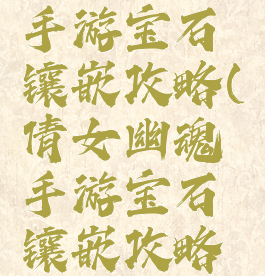 手游宝石
镶嵌攻略(
倩女幽魂
手游宝石
镶嵌攻略